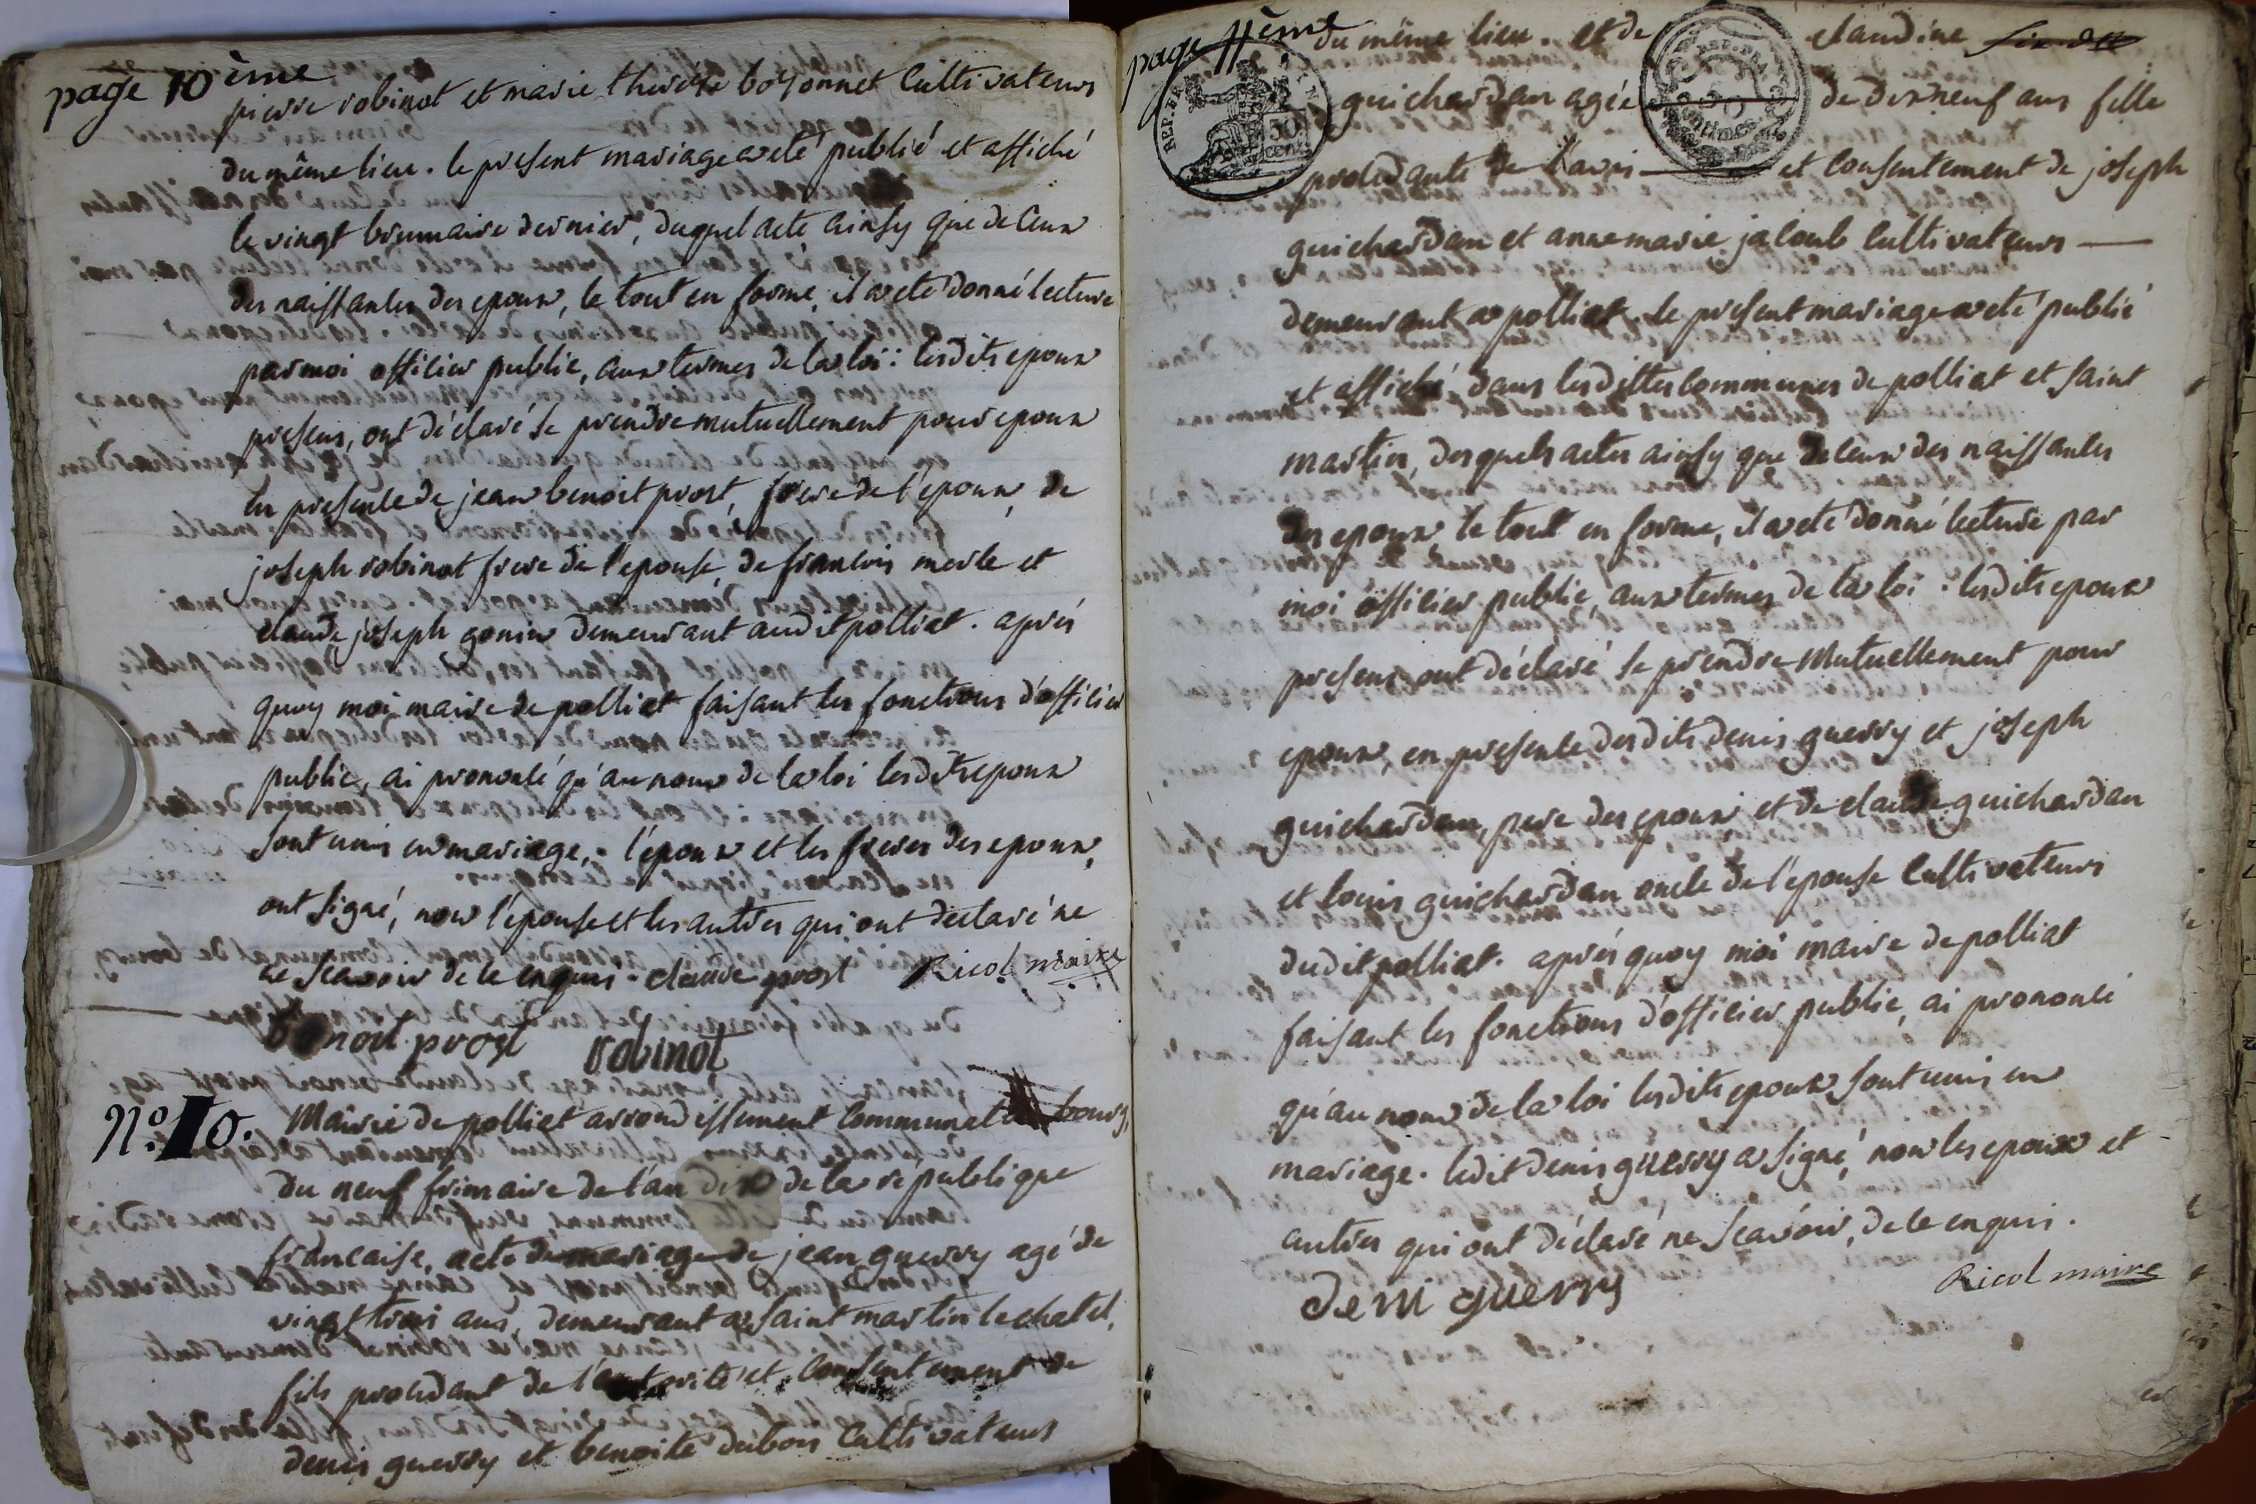 page 10ème
pierre robinot et marie therese boronnet cultivateurs
du même lieu. le present mariage a eté publié et affiché
le vingt brumaire dernier, duquel acte ainsy que de ceux
des naissances des epoux, le tout en forme, il a eté donné lecture
par moi officier public, aux termes de la loi: lesdits epoux
presens, ont déclaré se prendre mutuellement pour epoux
en presence de jean benoit prost, frere de l'epoux, de
joseph robinot frere de l'epouse, de francois merle et
claude joseph gonin demeurant audit polliat. aprés
quoy moi maire de polliat faisant les fonctions d'officier
public, ai prononcé qu'au nom de la loi lesdits epoux
sont unis en mariage, l'époux et les freres des epoux,
ont signé, non l'épouse et les autres qui ont declaré ne
le scavoir de ce enquis. claude prost Ricol maire
benoit prost robinot
N° 10. Mairie de polliat arrondissement communal bourg,
du neuf frimaire de l'an dix de la republique
francaise, acte de mariage de jean guerry agé de
vingt trois ans, demeurant a saint martin le chatel,
fils procedant de l'autorité et consentement de
denis guerry et benoite dubois cultivateurs
page 11ème
du même lieu. et de claudine
REP. FRA. 50 cent.
guichardan agée de dix neuf ans fille
procedante de l'avis et consentement de joseph
guichardan et anne marie jacoub cultivateurs
demeurant a polliat. le present mariage a eté publié
et affiché dans lesdittes communes de polliat et saint
martin, desquels actes ainsy que de ceux des naissances
des epoux le tout en forme, il a eté donné lecture par
moi officier public, aux termes de la loi. lesdits epoux
presens ont déclaré se prendre Mutuellement pour
epoux, en presence desdits denis guerry et joseph
guichardan, pere des epoux et de claude guichardan
et louis guichardan oncle de l'epouse cultivateurs
dudit polliat. aprés quoy moi maire de polliat
faisant les fonctions d'officier public, ai prononcé
qu'au nom de la loi lesdits epoux sont unis en
mariage. ledit denis guerry a signé, non les epoux et
autres qui ont déclaré ne scavoir, de ce enquis.
deni guerry Ricol maire